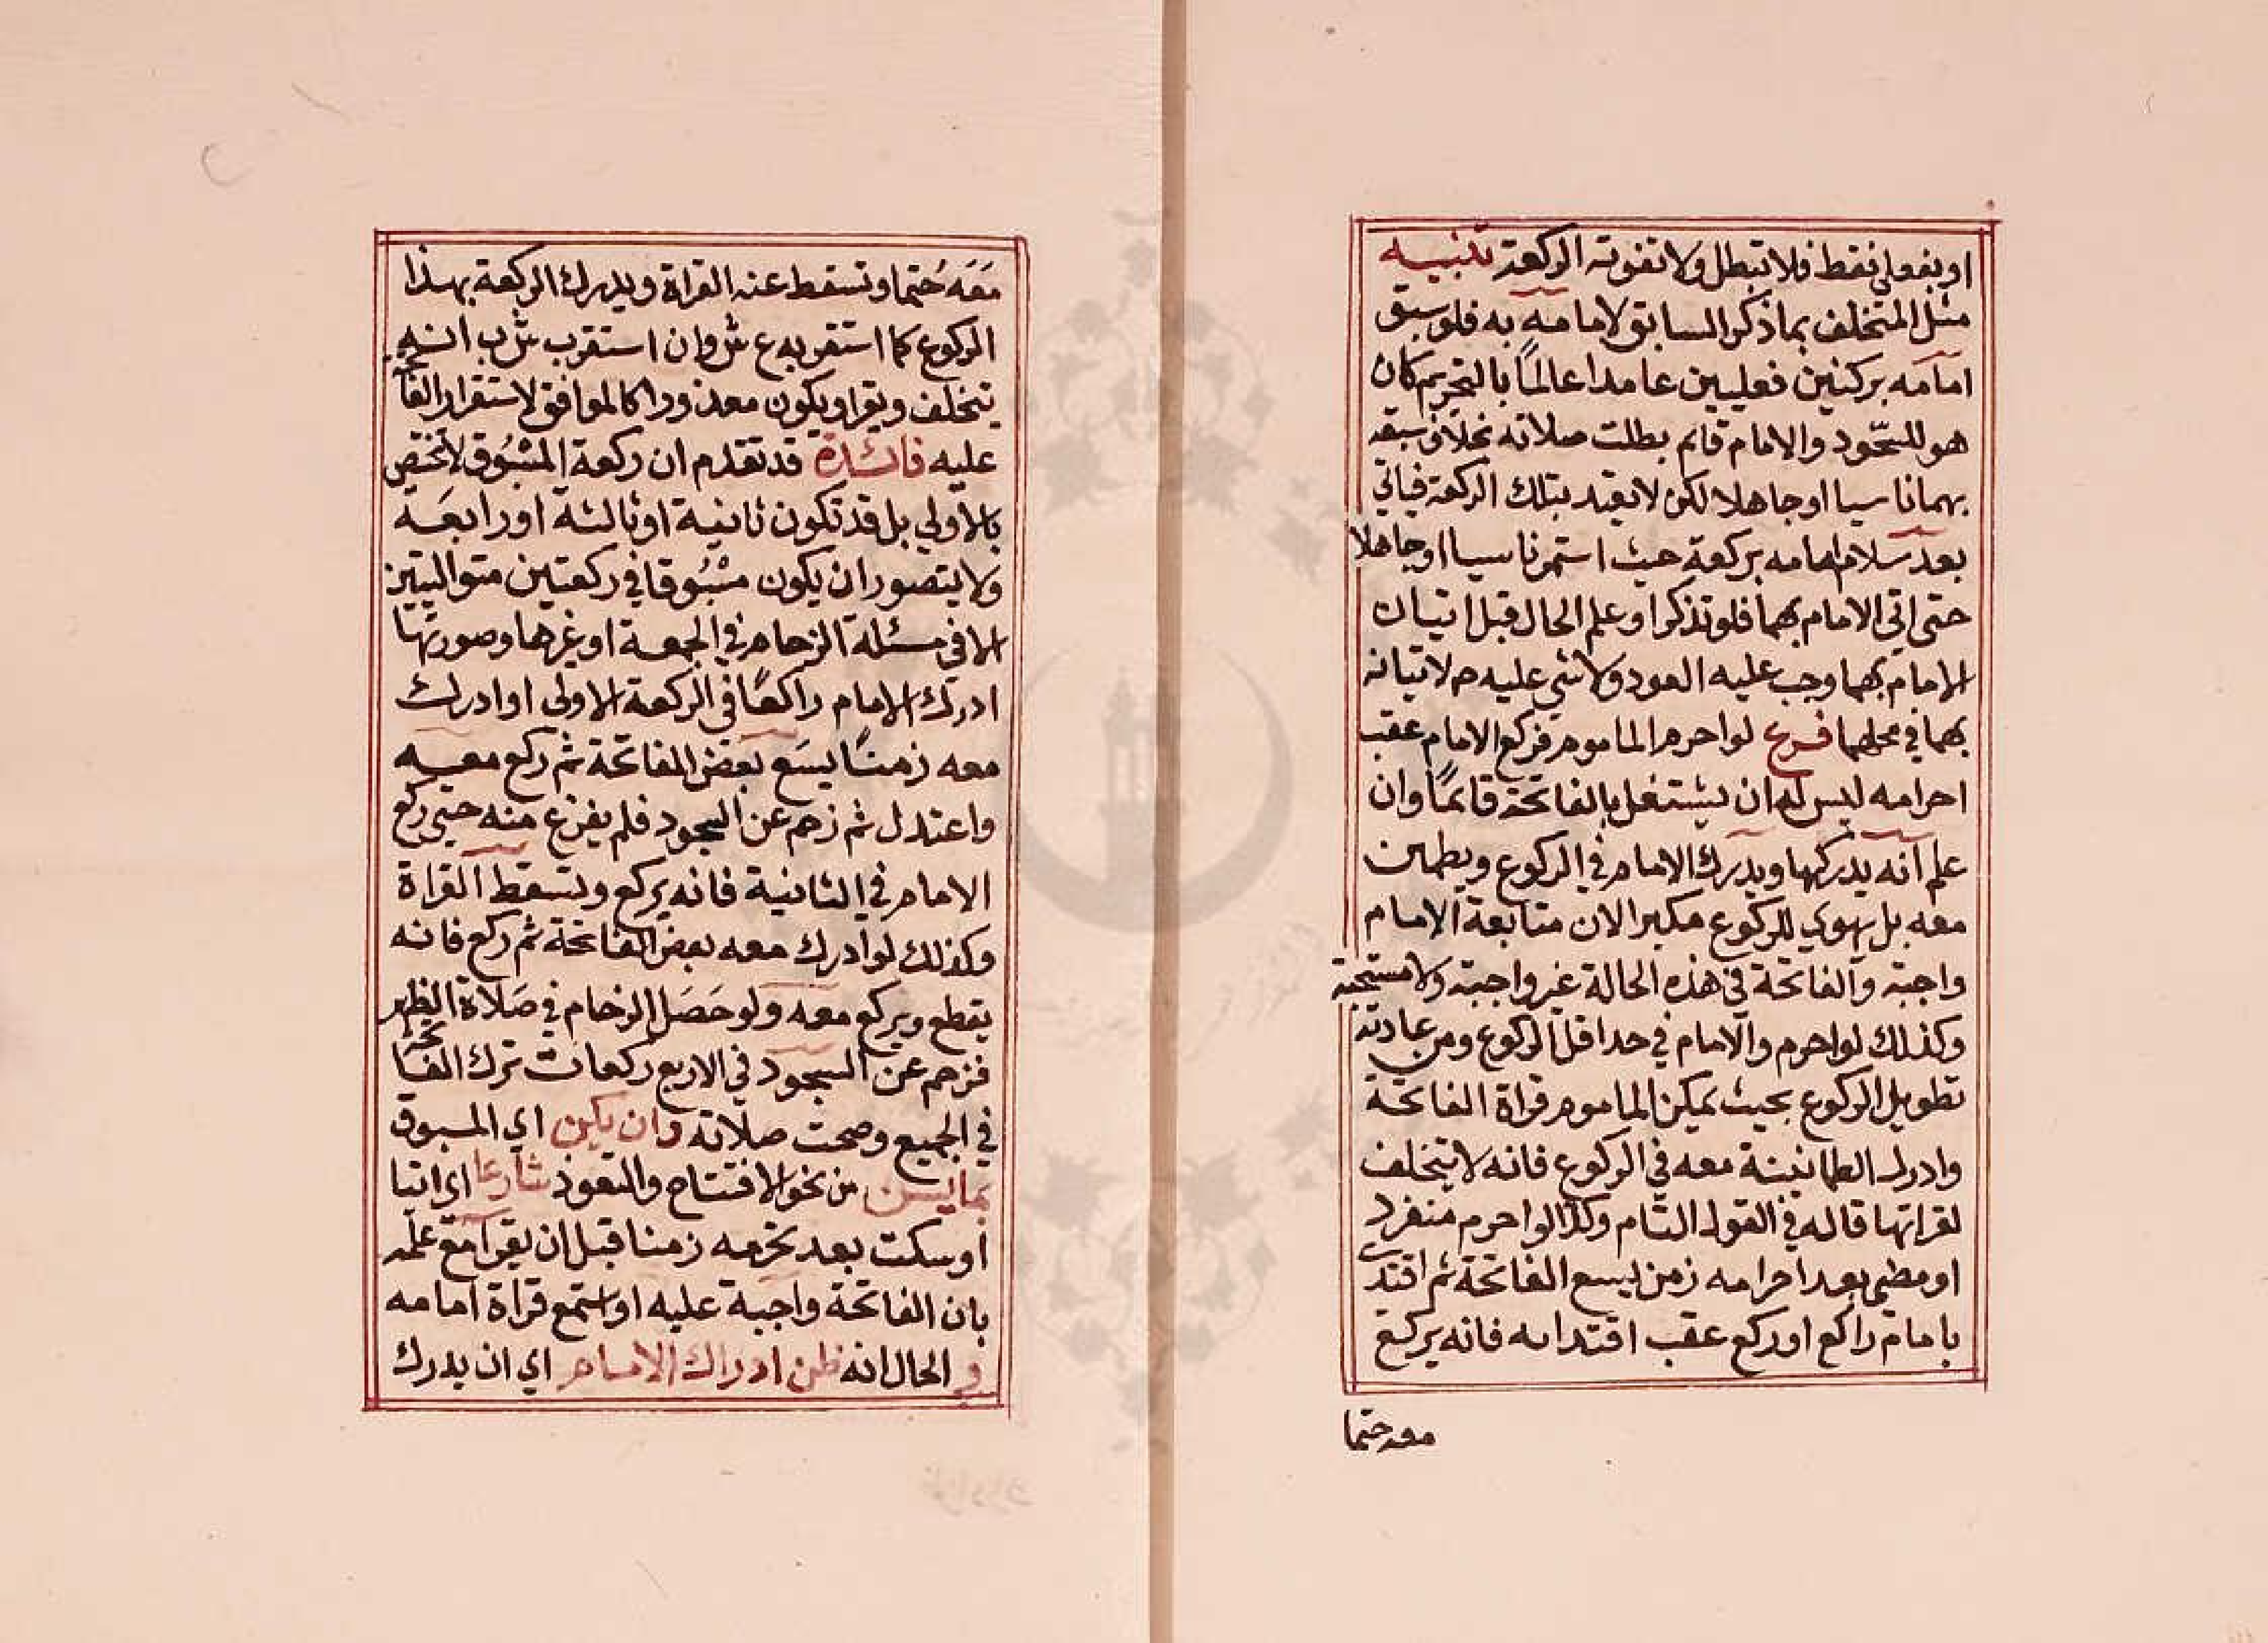 او بفعلي فقط فلا تبطل ولا تفوته الركعة تنبيه
مثل المتخلف بما ذكر السابق لامامه به فلو سبق
امامه بركنين فعليين عامدا عالمًا بالتحريم كان
هو للسجود والامام قائم بطلت صلاته بخلاف سبقه
بهما ناسيا او جاهلا لكن لا يعتد بتلك الركعة فياتي
بعد سلام امامه بركعة حيث استمر ناسيا او جاهلا
حتى اتى الامام بهما فلو تذكر او علم الحال قبل اتيان
الامام بهما وجب عليه العود ولا شي عليه ح لاتيانه
بهما في محلهما فرع لو احرم الماموم فركع الامام عقب
احرامه ليس له ان يشتغل بالفاتحة قائمًا وان
علم انه يدركها ويدرك الامام في الركوع ويطمئن
معه بل يهوي للركوع مكبرا لان متابعة الامام
واجبة والفاتحة في هذه الحالة غير واجبة ولا مستحبة
وكذلك لو احرم والامام في حد اقل الركوع ومن عادته
تطويل الركوع بحيث يمكن الماموم قراة الفاتحة
وادرك الطمانينة معه في الركوع فانه لا يتخلف
لقراتها قاله في القول التام وكذا لو احرم منفرد
او مضى بعد احرامه زمن يسع الفاتحة ثم اقتدى
بامام راكع او ركع عقب اقتدائه فانه يركع
معه حتما
مَعَه حُتما وتسقط عنه القراة ويدرك الركعة بهذا
الركوع كما استقر به ع ش وان استقرب ش ب انه
يتخلف ويقرا ويكون معذورا كالموافق لاستقرار الفاتحة
عليه فائدة قد تقدم ان ركعة المسْبُوق لا تختص
بالاولي بل قد تكون ثانية او ثالثة او رابعَة
ولا يتصور ان يكون مسْبُوقا في ركعتين متواليتين
الا في مسئلة الزحام في الجمعة او غيرها وصورتها
ادرك الامام راكعًا في الركعة الاولى او ادرك
معه زمنًا يسَع بعض الفاتحة ثم ركع معه
واعتدل ثم زحم عن السجود فلم يفرغ منه حتى ركع
الامام في الثانية فانه يركع وتسقط القراة
وكذلك لو ادرك معه بعض الفاتحة ثم ركع فانه
يقطع ويركع معه ولو حَصَل الزحام في صَلاة الظهر
فزحم عن السجود في الاربع ركعات ترك الفاتحة
في الجميع وصحت صلاته وان يكن اي المسبوق
بما يسن من نحو الافتتاح والتعوذ شارعا اي اتيا
او سكت بعد تحرمه زمنا قبل ان يقرا مع علمه
بان الفاتحة واجبة عليه او استمع قراة امامه
و الحال انه ظن ادراك الامام اي ان يدرك